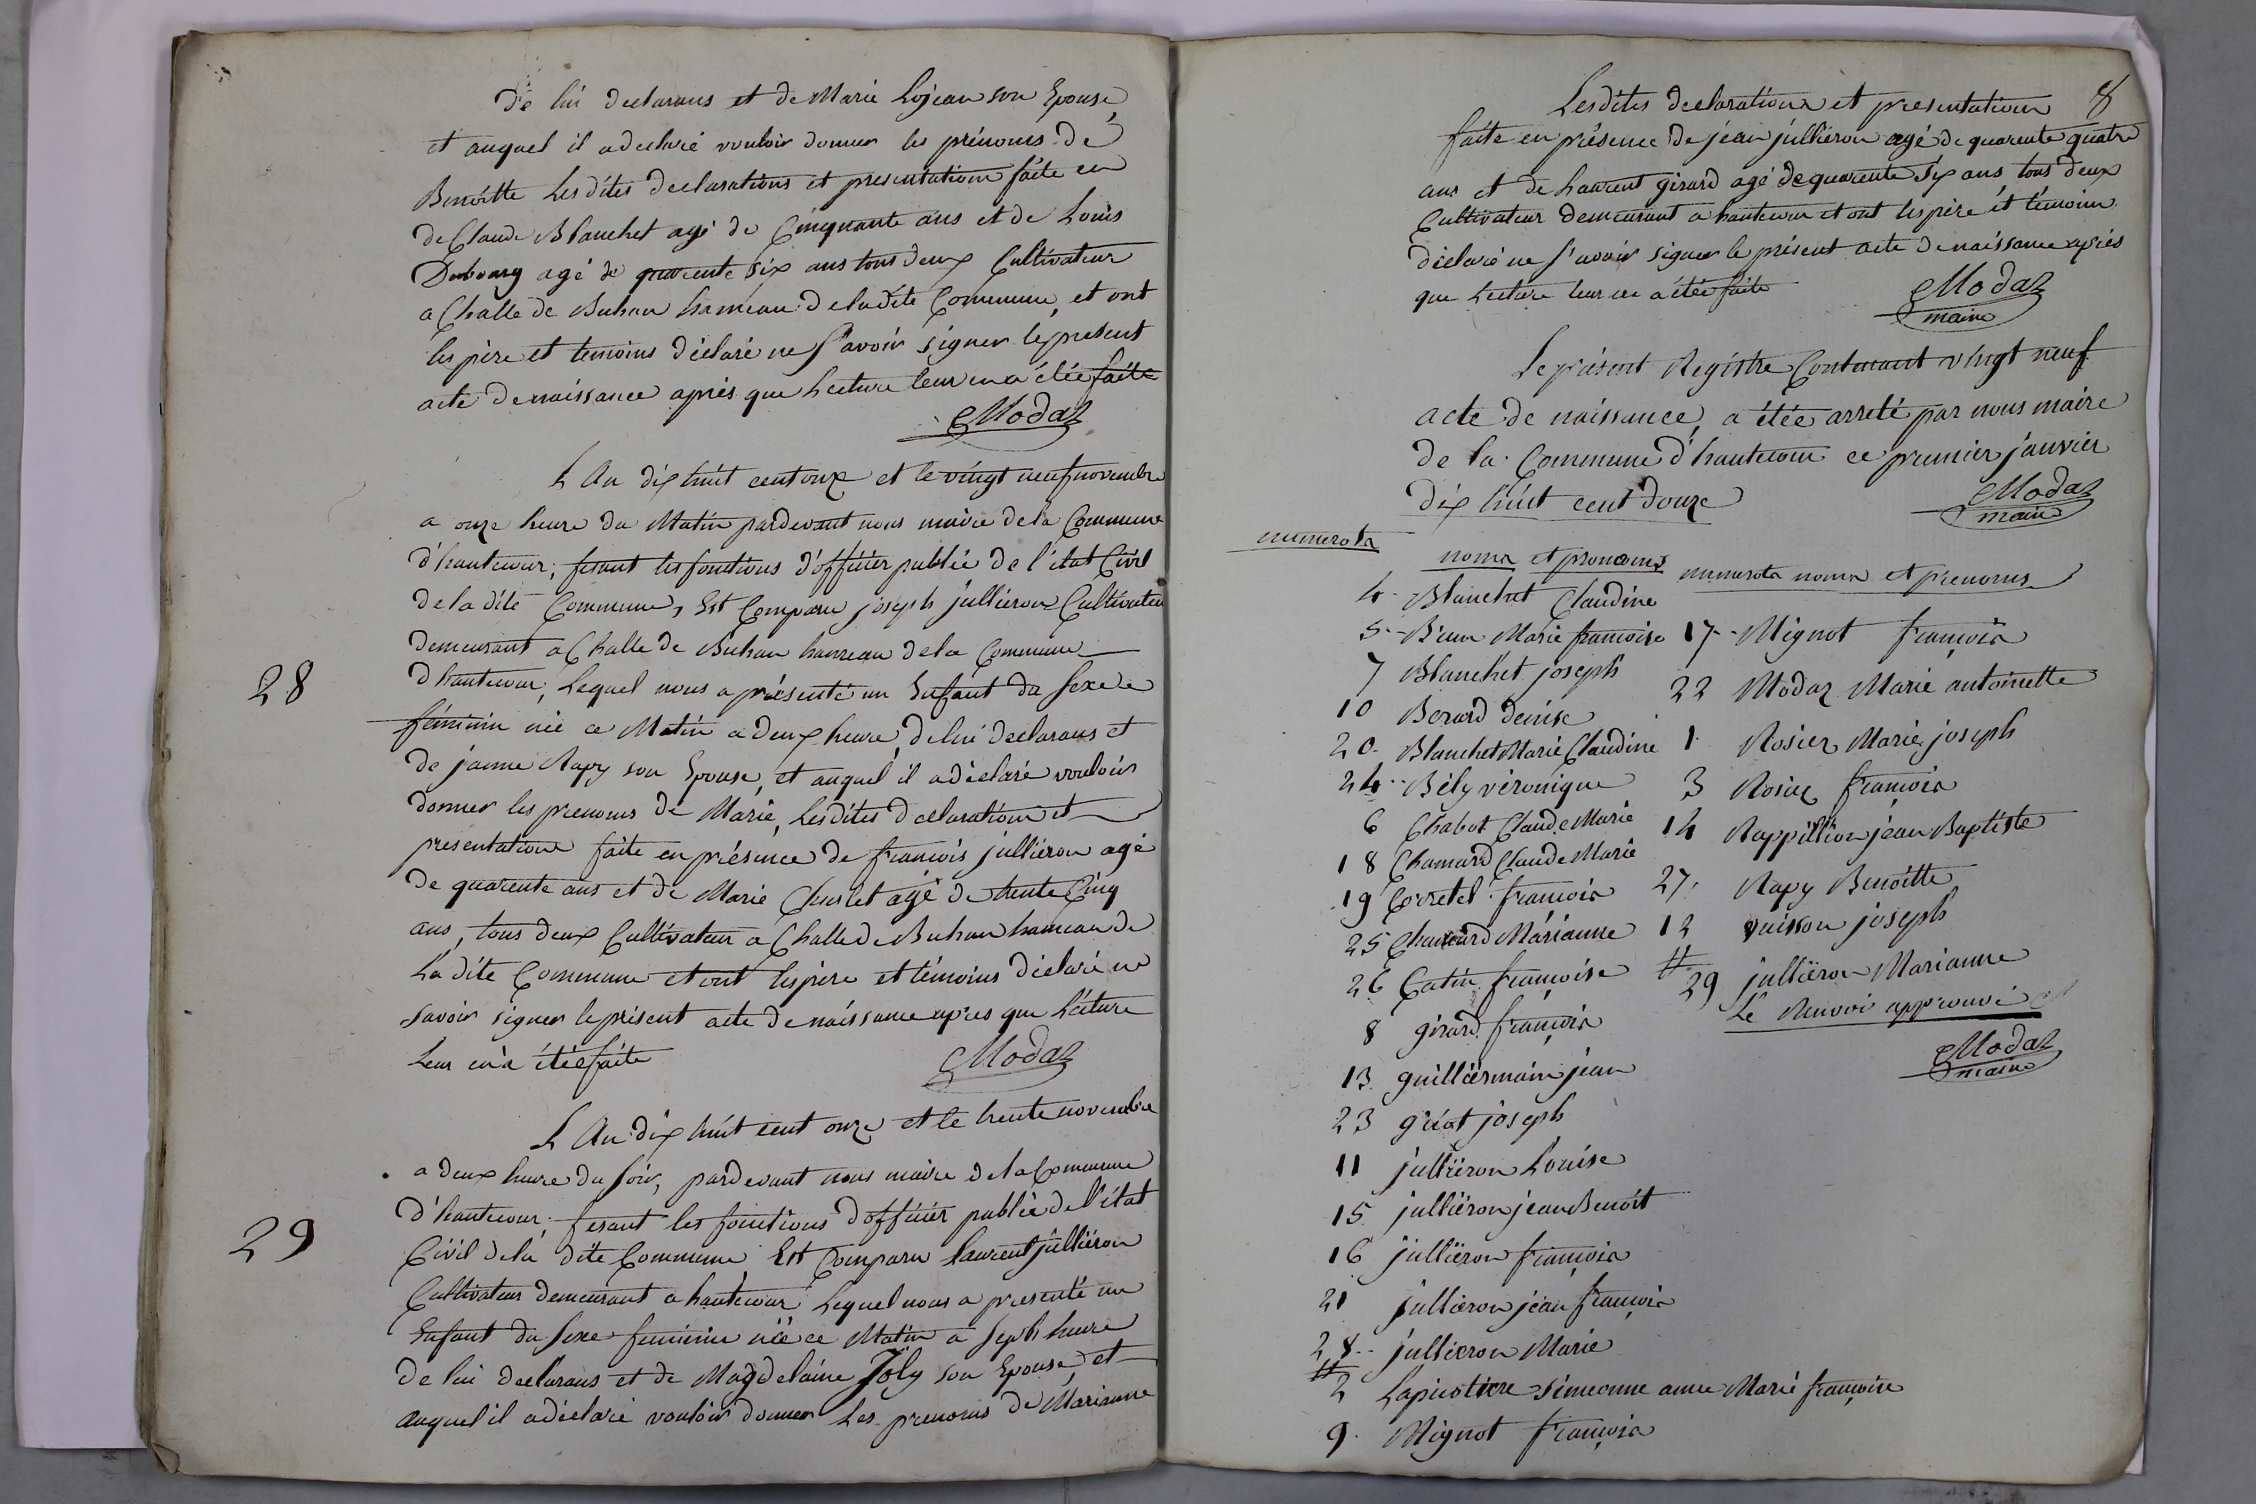 De lui declarans et de Marie Lojean son Epouse,
et auquel il a declaré vouloir donner les prénoms de
Benoitte Les dites declarations et presentation faite en
de Claude Blanchet agé de Cinquante ans et de Louis
Dubourg agé de quarente six ans tous deux Cultivateur
a Challe de Buhan hameau de la dite Commune, et ont
les père et temoins déclaré ne savoir signer le present
acte de naissance après que Lecture leur en a étée faite
Modaz
L An dix huit cent onze et le vingt neuf novembre
a onze heure du Matin pardevant nous maire de la Commune
d'hautecour, fesant les fonctions d'officier publie de l'état Civil
de la dite Commune, Est Comparu joseph jullieron Cultivateur
demeurant a Challe de Buhan hameau de la Commune
28
d'hautecour, Lequel nous a présenté un Enfant du Sexe
féminin née ce Matin a deux heure, de lui declarans et
de janne Rapy son Epouse, et auquel il a déclaré vouloir
donner les prenoms de Marie, Les dites declaration et
presentation faite en présence de francois jullieron agé
de quarente ans et de Marie Chuslet agé de trente Cinq
ans, tous deux Cultivateur a Challe de Buhan hameau de
La dite Commune et ont les père et témoins déclaré ne
savoir signer le présent acte de naissance apres que Lecture
Leur en a étée faite
Modaz
L An dix huit cent onze et le trente novembre
a deux heure du soir, pardevant nous maire de la Commune
29
d'hautecour, fesant les fonctions d'officier publie de l'état
Civil de la dite Commune, Est Comparu Laurent jullieron
Cultivateur demeurant a hautecour Lequel nous a presenté un
Enfant du Sexe feminin née ce Matin a Sept heure
de lui declarans et de Magdelaine Joly son Epouse, et
auquel il a déclaré vouloir donner Les prenoms de Marianne
Les dites declaration et presentation 8
faite en présence de jean jullieron agé de quarente quatre
ans et de Laurent girard agé de quarente Six ans tous deux
Cultivateur demeurant a hautecour et ont les père et témoin
déclaré ne savoir signer le présent acte de naissance après
que Lecture leur en a étée faite
Modaz
maire
Le présent Registre Contenant vingt neuf
acte de naissance, a étée arreté par nous maire
de la Commune d'hautecour ce premier janvier
dix huit cent douze
Modaz
maire
numerota noms et pronoms
4 Blanchet Claudine
5 Biau Marie francoise
7 Blanchet joseph
10 Berard denise
20 Blanchet Marie Claudine
24 Bély véronique
6 Chabot Claude Marie
18 Chamard Claude Marie
19 Corretel francois
25 Chamard Marianne
26 Catin françoise
8 girard françois
13 guillermain jean
23 griot joseph
11 jullieron Louise
15 jullieron jean Benoit
16 jullieron françois
21 jullieron jean françois
28 jullieron Marie
#
2 Lapicotiere simeonne anne Marie françoise
9 Mignot françois
numerota noms et prenoms
17 Mignot françois
22 Modaz Marie antoinette
1 Rosier Marie joseph
3 Rosier francois
14 Rappillion jean Baptiste
27 Rapy Benoitte
12 vuisson joseph
# 29 jullieron Marianne
Le Renvoi approuvé
Modaz
maire